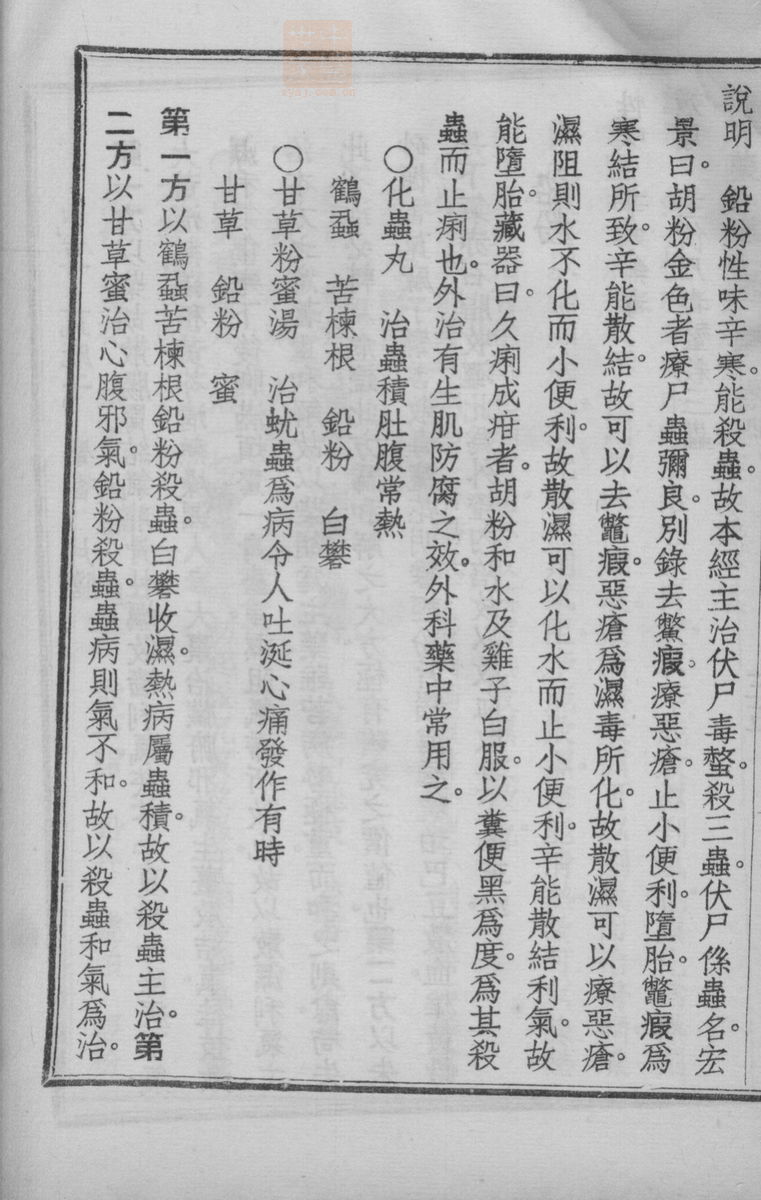 說明　鉛粉性味辛寒。能殺蟲。故本經主治伏尸毒螫。殺三蟲。伏尸係蟲名。宏
景曰。胡粉金色者療尸蟲彌良。別錄去鱉瘕。療惡瘡。止小便利。墮胎。鼈瘕爲
寒結所致。辛能散結。故可以去鼈瘕。惡瘡爲濕毒所化。故散濕可以療惡瘡。
濕阻則水不化而小便利。故散濕可以化水而止小便利。辛能散結利氣。故
能墮胎。藏器曰。久痢成疳者。胡粉和水及雞子白服。以糞便黑爲度。爲其殺
蟲而止痢也。外治有生肌防腐之效。外科藥中常用之。
○化蟲丸　治蟲積肚腹常熱
鶴蝨　苦楝根　鉛粉　白礬
○甘草粉蜜湯　治蚘蟲爲病令人吐涎心痛發作有時
甘草　鉛粉　蜜
第一方以鶴蝨苦楝根鉛粉殺蟲。白礬收濕。熱病屬蟲積。故以殺蟲主治。第
二方以甘草蜜治心腹邪氣。鉛粉殺蟲。蟲病則氣不和。故以殺蟲和氣爲治。